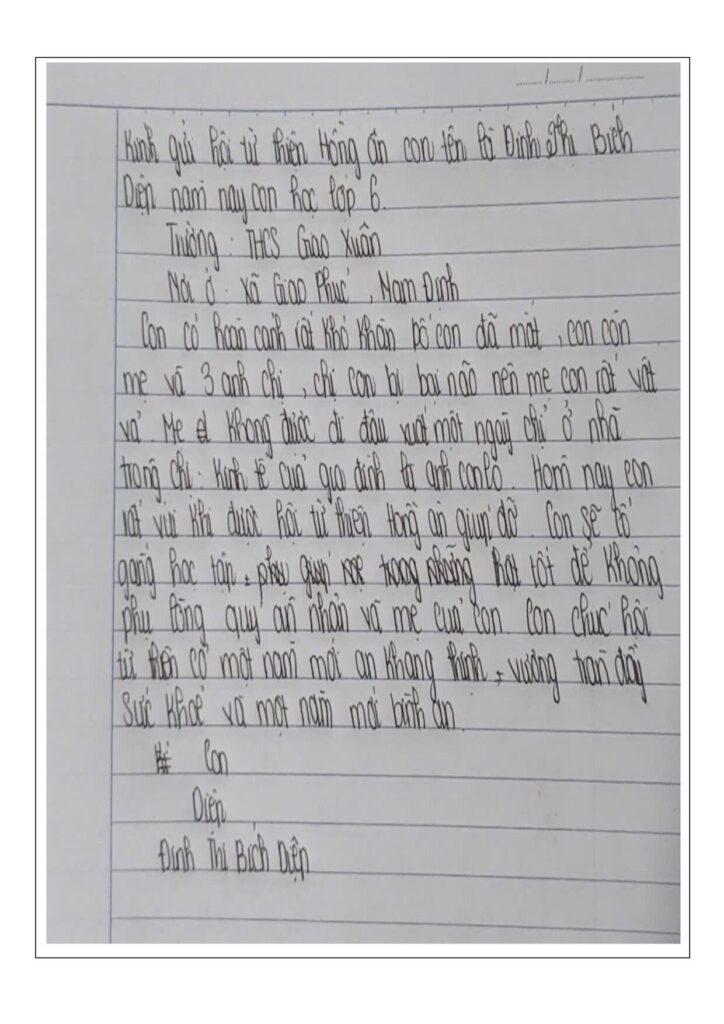 ....../....../............
Kính gửi hội từ thiện Hồng ân con tên là Đinh Thị Bích
Diện năm nay con học lớp 6.
Trường : THCS Giao Xuân
Nơi ở : Xã Giao Phúc, Nam Định
Con có hoàn cảnh rất khó khăn bố con đã mất, con còn
mẹ và 3 anh chị, chị con bị bại não nên mẹ con rất vất
vả. Mẹ không được đi đâu xuất một ngày chỉ ở nhà
trông chị. Kinh tế của gia đình là anh con lo. Hôm nay con
rất vui khi được hội từ thiện Hồng ân giúp đỡ. Con sẽ cố
gắng học tập, phụ giúp mẹ trong những hạt tốt để không
phụ lòng quý ân nhân và mẹ của con. Con chúc hội
từ thiện có một năm mới an khang thịnh, vượng tràn đầy
sức khoẻ và một năm mới bình an.
Con
Diện
Đinh Thị Bích Diện